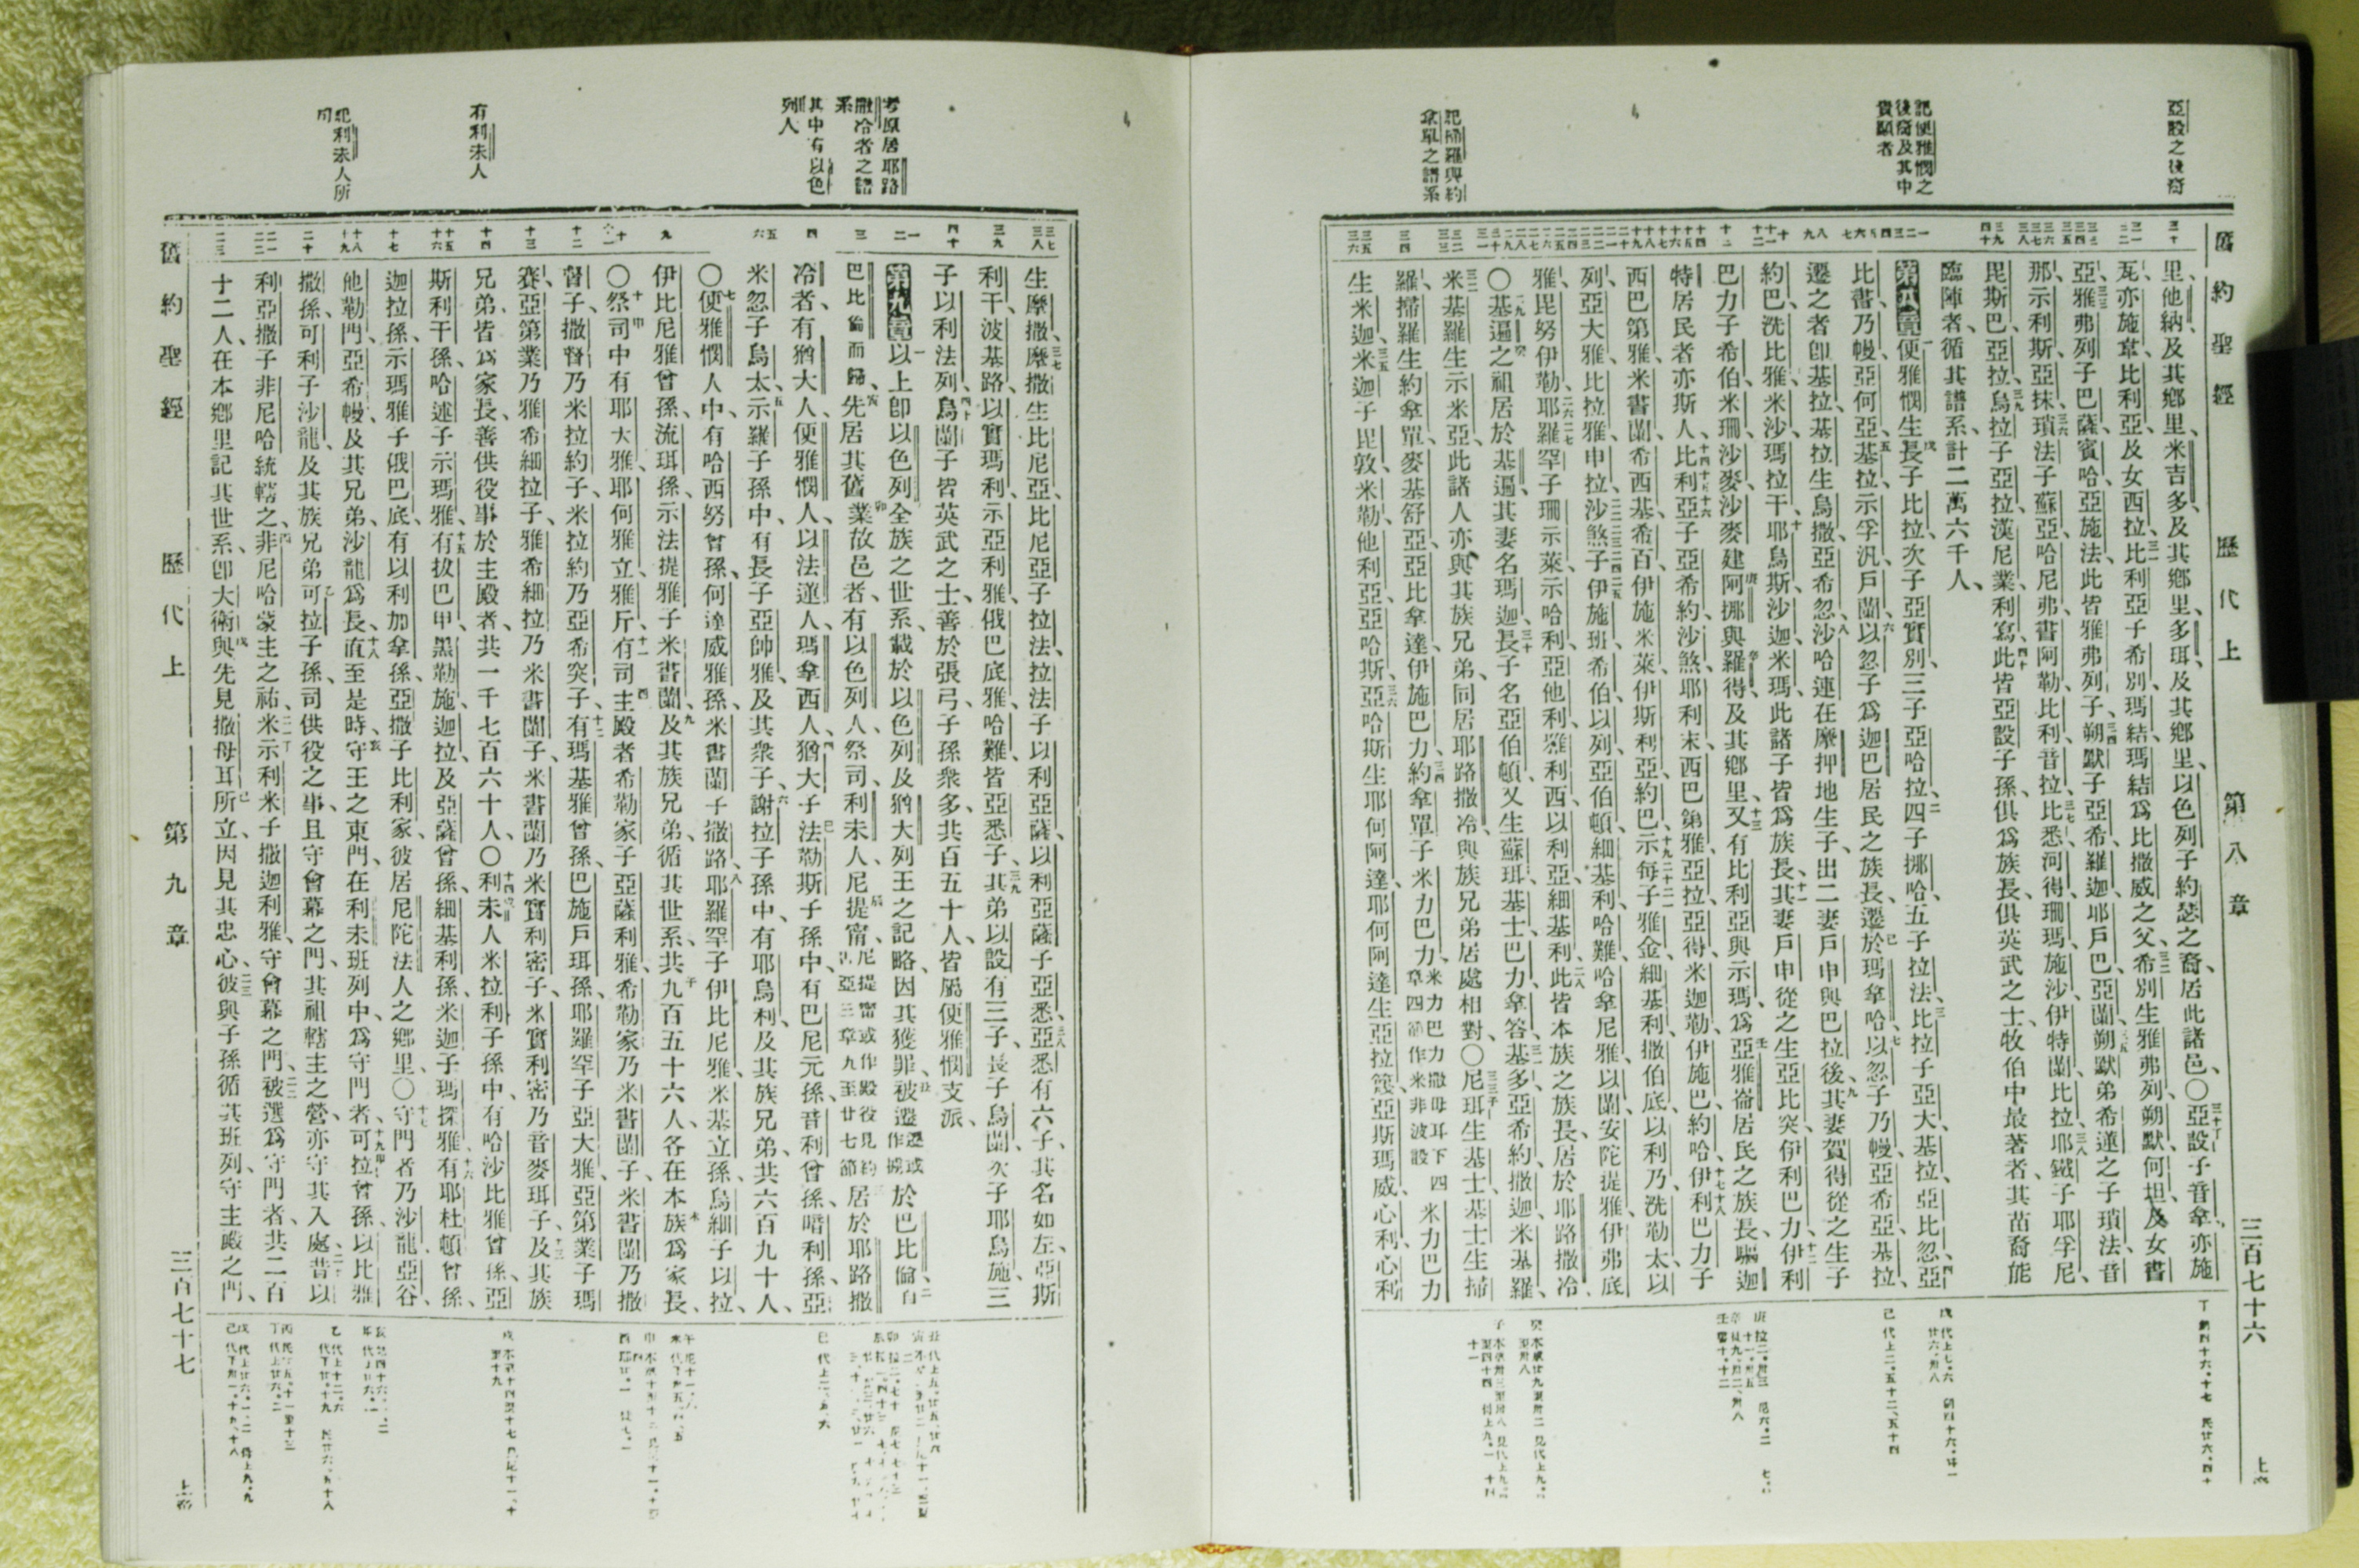 亞設之後裔
記便雅憫之
後裔及其中
貴顯者
記掃羅與約
拿單之譜系
舊約聖經 歷代上 第八章 三百七十六
里、他納、及其鄉里、米吉多、及其鄉里、多珥、及其鄉里、以色列子約瑟之裔、居此諸邑、○亞設子音拿、亦施
瓦、亦施韋、比利亞、及女西拉、比利亞子希別、瑪結、瑪結爲比撒威之父、希別生雅弗列、朔默、何坦、及女書
亞、雅弗列子巴薩、賓哈、亞施法、此皆雅弗列子、朔默子亞希、羅迦、耶戶巴、亞蘭、朔默弟希蓮之子瑣法、音
那、示利斯、亞抹、瑣法子蘇亞、哈尼弗、書阿勒、比利、音拉、比悉、河得、珊瑪、施沙、伊特蘭、比拉、耶鐵子耶孚尼、
毘斯巴、亞拉、烏拉子亞拉、漢尼業、利寫、此皆亞設子孫、俱爲族長、俱英武之士、牧伯中最著者、其苗裔能
臨陣者、循其譜系、計二萬六千人、
第八章 便雅憫生長子比拉、次子亞實別、三子亞哈拉、四子挪哈、五子拉法、比拉子亞大、基拉、亞比忽、亞
比書、乃幔、亞何亞、基拉、示孚汎、戶蘭、以忽子爲迦巴居民之族長、遷於瑪拿哈、以忽子乃幔、亞希亞、基拉、
遷之者卽基拉、基拉生烏撒、亞希忽、沙哈連在摩押地生子、出二妻戶申與巴拉後、其妻賀得從之生子
約巴、洗比雅、米沙、瑪拉干、耶烏斯、沙迦、米瑪、此諸子皆爲族長、其妻戶申從之生亞比突、伊利巴力、伊利
巴力子希伯、米珊、沙麥、沙麥建阿挪與羅得、及其鄉里、又有比利亞與示瑪、爲亞雅崙居民之族長、驅迦
特居民者、亦斯人、比利亞子亞希約、沙煞、耶利末、西巴第雅、亞拉、亞得、米迦勒、伊施巴、約哈、伊利巴力子
西巴第雅、米書蘭、希西基、希百、伊施米萊、伊斯利亞、約巴、示每子雅金、細基利、撒伯底、以利乃、洗勒太、以
列、亞大雅、比拉雅、申拉、沙煞子伊施班、希伯、以列、亞伯頓、細基利、哈難、哈拿尼雅、以蘭、安陀提雅、伊弗底
雅、毘努伊勒、耶羅罕子珊示萊、示哈利、亞他利、雅利西、以利亞、細基利、此皆本族之族長、居於耶路撒冷、
○基遍之祖居於基遍、其妻名瑪迦、長子名亞伯頓、又生蘇珥、基士、巴力、拿答、基多、亞希約、撒迦、米基羅、
米基羅生示米亞、此諸人亦與其族兄弟同居耶路撒冷、與族兄弟居處相對、○尼珥生基士、基士生掃
羅、掃羅生約拿單、麥基舒亞、亞比拿達、伊施巴力、約拿單子米力巴力、米力巴力撒母耳下四章四節作米非波設 米力巴力
生米迦、米迦子毘敦、米勒、他利亞、亞哈斯、亞哈斯生耶何阿達、耶何阿達生亞拉篾、亞斯瑪威、心利、心利
考原居耶路
撒冷者之譜
系
其中有以色
列人
有利未人
記利未人所
司
生摩撒、摩撒生比尼亞、比尼亞子拉法、拉法子以利亞薩、以利亞薩子亞悉、亞悉有六子、其名如左、亞斯
利干、波基路、以實瑪利、示亞利雅、俄巴底雅、哈難、皆亞悉子、其弟以設有三子、長子烏蘭、次子耶烏施、三
子以利法列、烏蘭子皆英武之士、善於張弓、子孫衆多、共百五十人、皆屬便雅憫支派、
第九章 以上卽以色列全族之世系、載於以色列及猶大列王之記略、因其獲罪、被遷遷或作擄於巴比倫、自
巴比倫而歸、先居其舊業故邑者、有以色列人、祭司、利未人、尼提甯、尼提甯或作殿役見約書亞三章九至廿七節 居於耶路撒
冷者、有猶大人、便雅憫人、以法蓮人、瑪拿西人、猶大子法勒斯子孫中、有巴尼元孫、音利曾孫、暗利孫、亞
米忽子烏太、示羅子孫中、有長子亞帥雅、及其衆子、謝拉子孫中、有耶烏利及其族兄弟、共六百九十人、
○便雅憫人中、有哈西努曾孫、何達威雅孫、米書蘭子撒路、耶羅罕子伊比尼雅、米基立孫、烏細子以拉、
伊比尼雅曾孫、流珥孫、示法提雅子米書蘭、及其族兄弟、循其世系、共九百五十六人、各在本族爲家長、
○祭司中有耶大雅、耶何雅立、雅斤、有司主殿者、希勒家子亞薩利雅、希勒家乃米書蘭子、米書蘭乃撒
督子、撒督乃米拉約子、米拉約乃亞希突子、有瑪基雅曾孫、巴施戶珥孫、耶羅罕子亞大雅、亞第業子瑪
賽、亞第業乃雅希細拉子、雅希細拉乃米書蘭子、米書蘭乃米實利密子、米實利密乃音麥珥子、及其族
兄弟、皆爲家長、善供役事於主殿者、共一千七百六十人、○利未人米拉利子孫中、有哈沙比雅曾孫、亞
斯利干孫、哈述子示瑪雅、有拔巴甲、黑勒施、迦拉、及亞薩曾孫、細基利孫、米迦子瑪探雅、有耶杜頓曾孫、
迦拉孫、示瑪雅子俄巴底、有以利加拿孫、亞撒子比利家、彼居尼陀法人之鄉里、○守門者乃沙龍、亞谷、
他勒門、亞希幔、及其兄弟、沙龍爲長、直至是時、守王之東門、在利未班列中、爲守門者、可拉曾孫、以比雅
撒孫、可利子沙龍、及其族兄弟可拉子孫、司供役之事、且守會幕之門、其祖轄主之營、亦守其入處、昔以
利亞撒子非尼哈統轄之、非尼哈蒙主之祐、米示利米子撒迦利雅、守會幕之門、被選爲守門者、共二百
十二人、在本鄉里記其世系、卽大衛與先見撒母耳所立、因見其忠心、彼與子孫循其班列、守主殿之門、
舊約聖經 歷代上 第九章 三百七十七